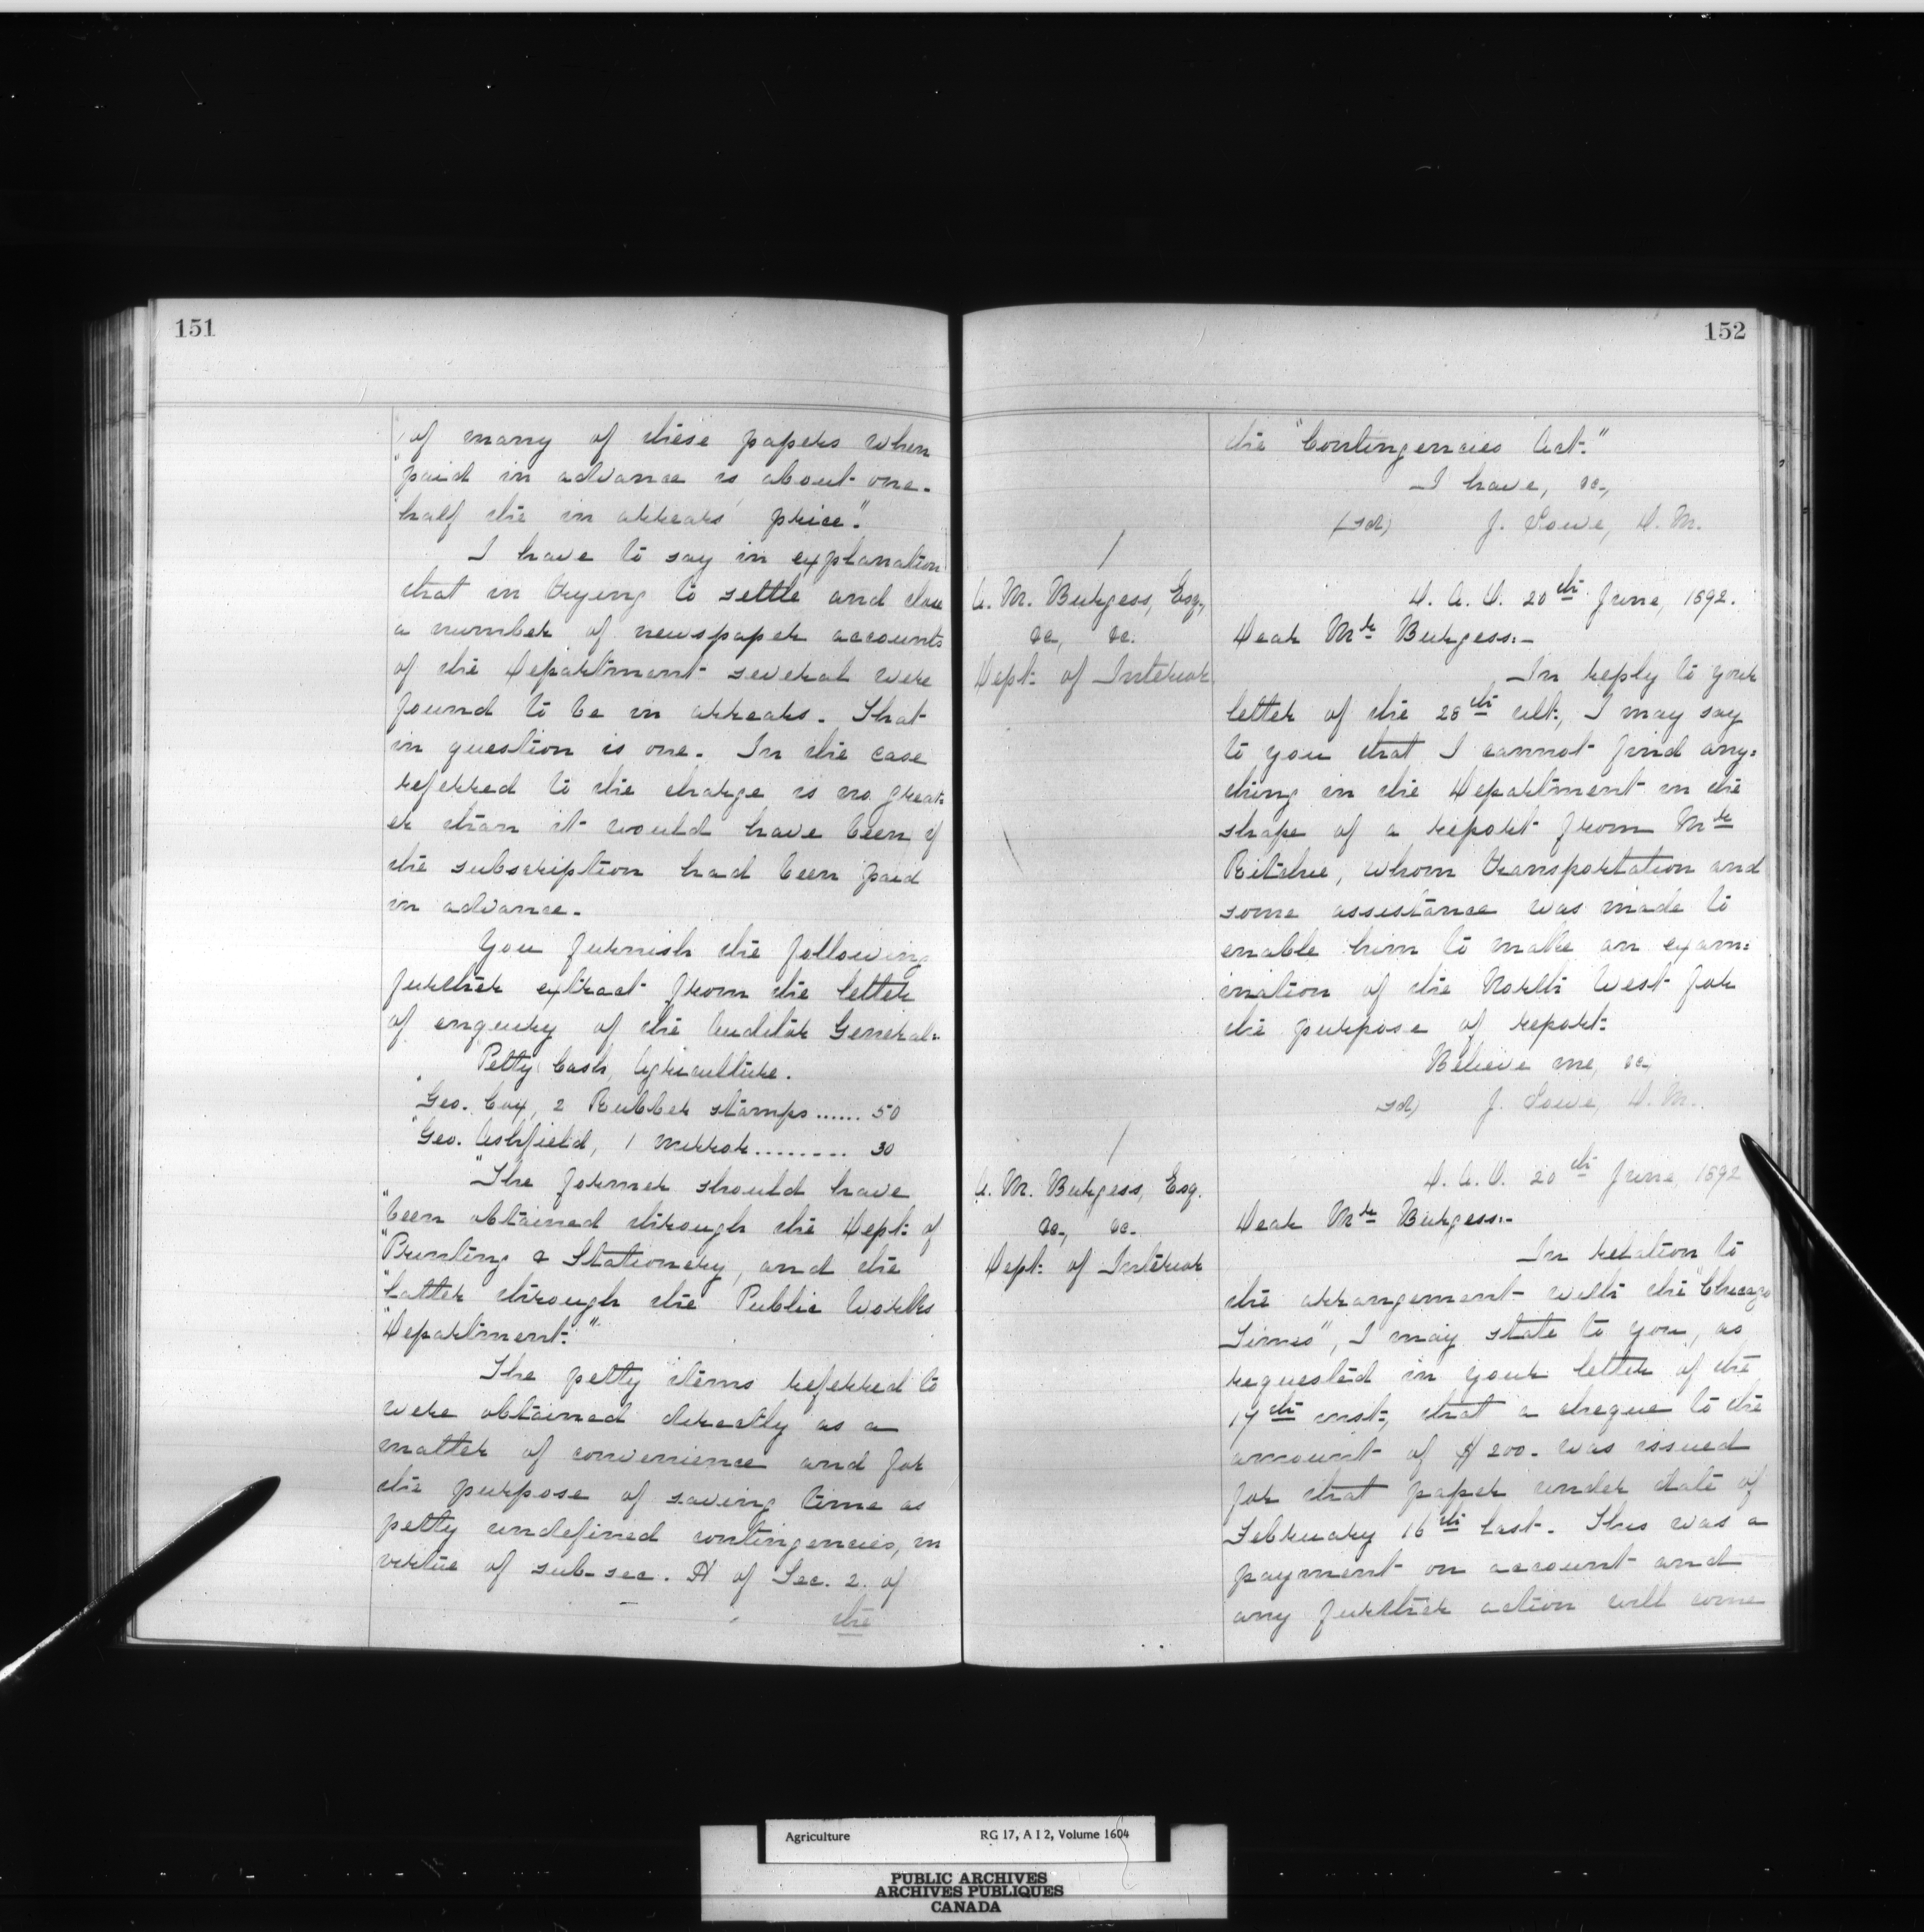 151
"of many of these papers when
"paid in advance is about one-
"half the 'in arrears' price."
I have to say in explanation
that in trying to settle and close
a number of newspaper accounts
of the Department several were
found to be in arrears. That
in question is one. In the case
referred to the charge is no great-
er than it would have been if
the subscription had been paid
in advance.
You furnish the following
further extract from the letter
of enquiry of the Auditor General:-
"Petty Cash, Agriculture.
"Geo. Cox, 2 Rubber stamps ...... 50
"Geo. Ashfield, 1 mirror ......... 30
"The former should have
"been obtained through the Dept. of
"Printing & Stationery, and the
"latter through the Public Works
"Department."
The petty items referred to
were obtained directly as a
matter of convenience and for
the purpose of saving time as
petty undefined contingencies, in
virtue of sub-sec. A of Sec. 2. of
the
152
the "Contingencies Act."
I have, &c.,
(sd) J. Lowe, D. M.
/
A. M. Burgess, Esq.,
&c., &c.
Dept. of Interior.
D. A. O. 20th June, 1892.
Dear Mr. Burgess:-
In reply to your
letter of the 28th ult., I may say
to you that I cannot find any=
thing in the Department in the
shape of a report from Mr.
Ritchie, whom transportation and
some assistance was made to
enable him to make an exam=
ination of the North West for
the purpose of report.
Believe me, &c.
sd) J. Lowe, D. M.
/
A. M. Burgess, Esq.
&c., &c.
Dept. of Interior
D. A. O. 20th June, 1892
Dear Mr. Burgess:-
In relation to
the arrangement with the "Chicago
Times", I may state to you, as
requested in your letter of the
17th inst., that a cheque to the
amount of $200. was issued
for that paper under date of
February 16th last. This was a
payment on account and
any further action will come
Agriculture RG 17, A I 2, Volume 1604
PUBLIC ARCHIVES
ARCHIVES PUBLIQUES
CANADA